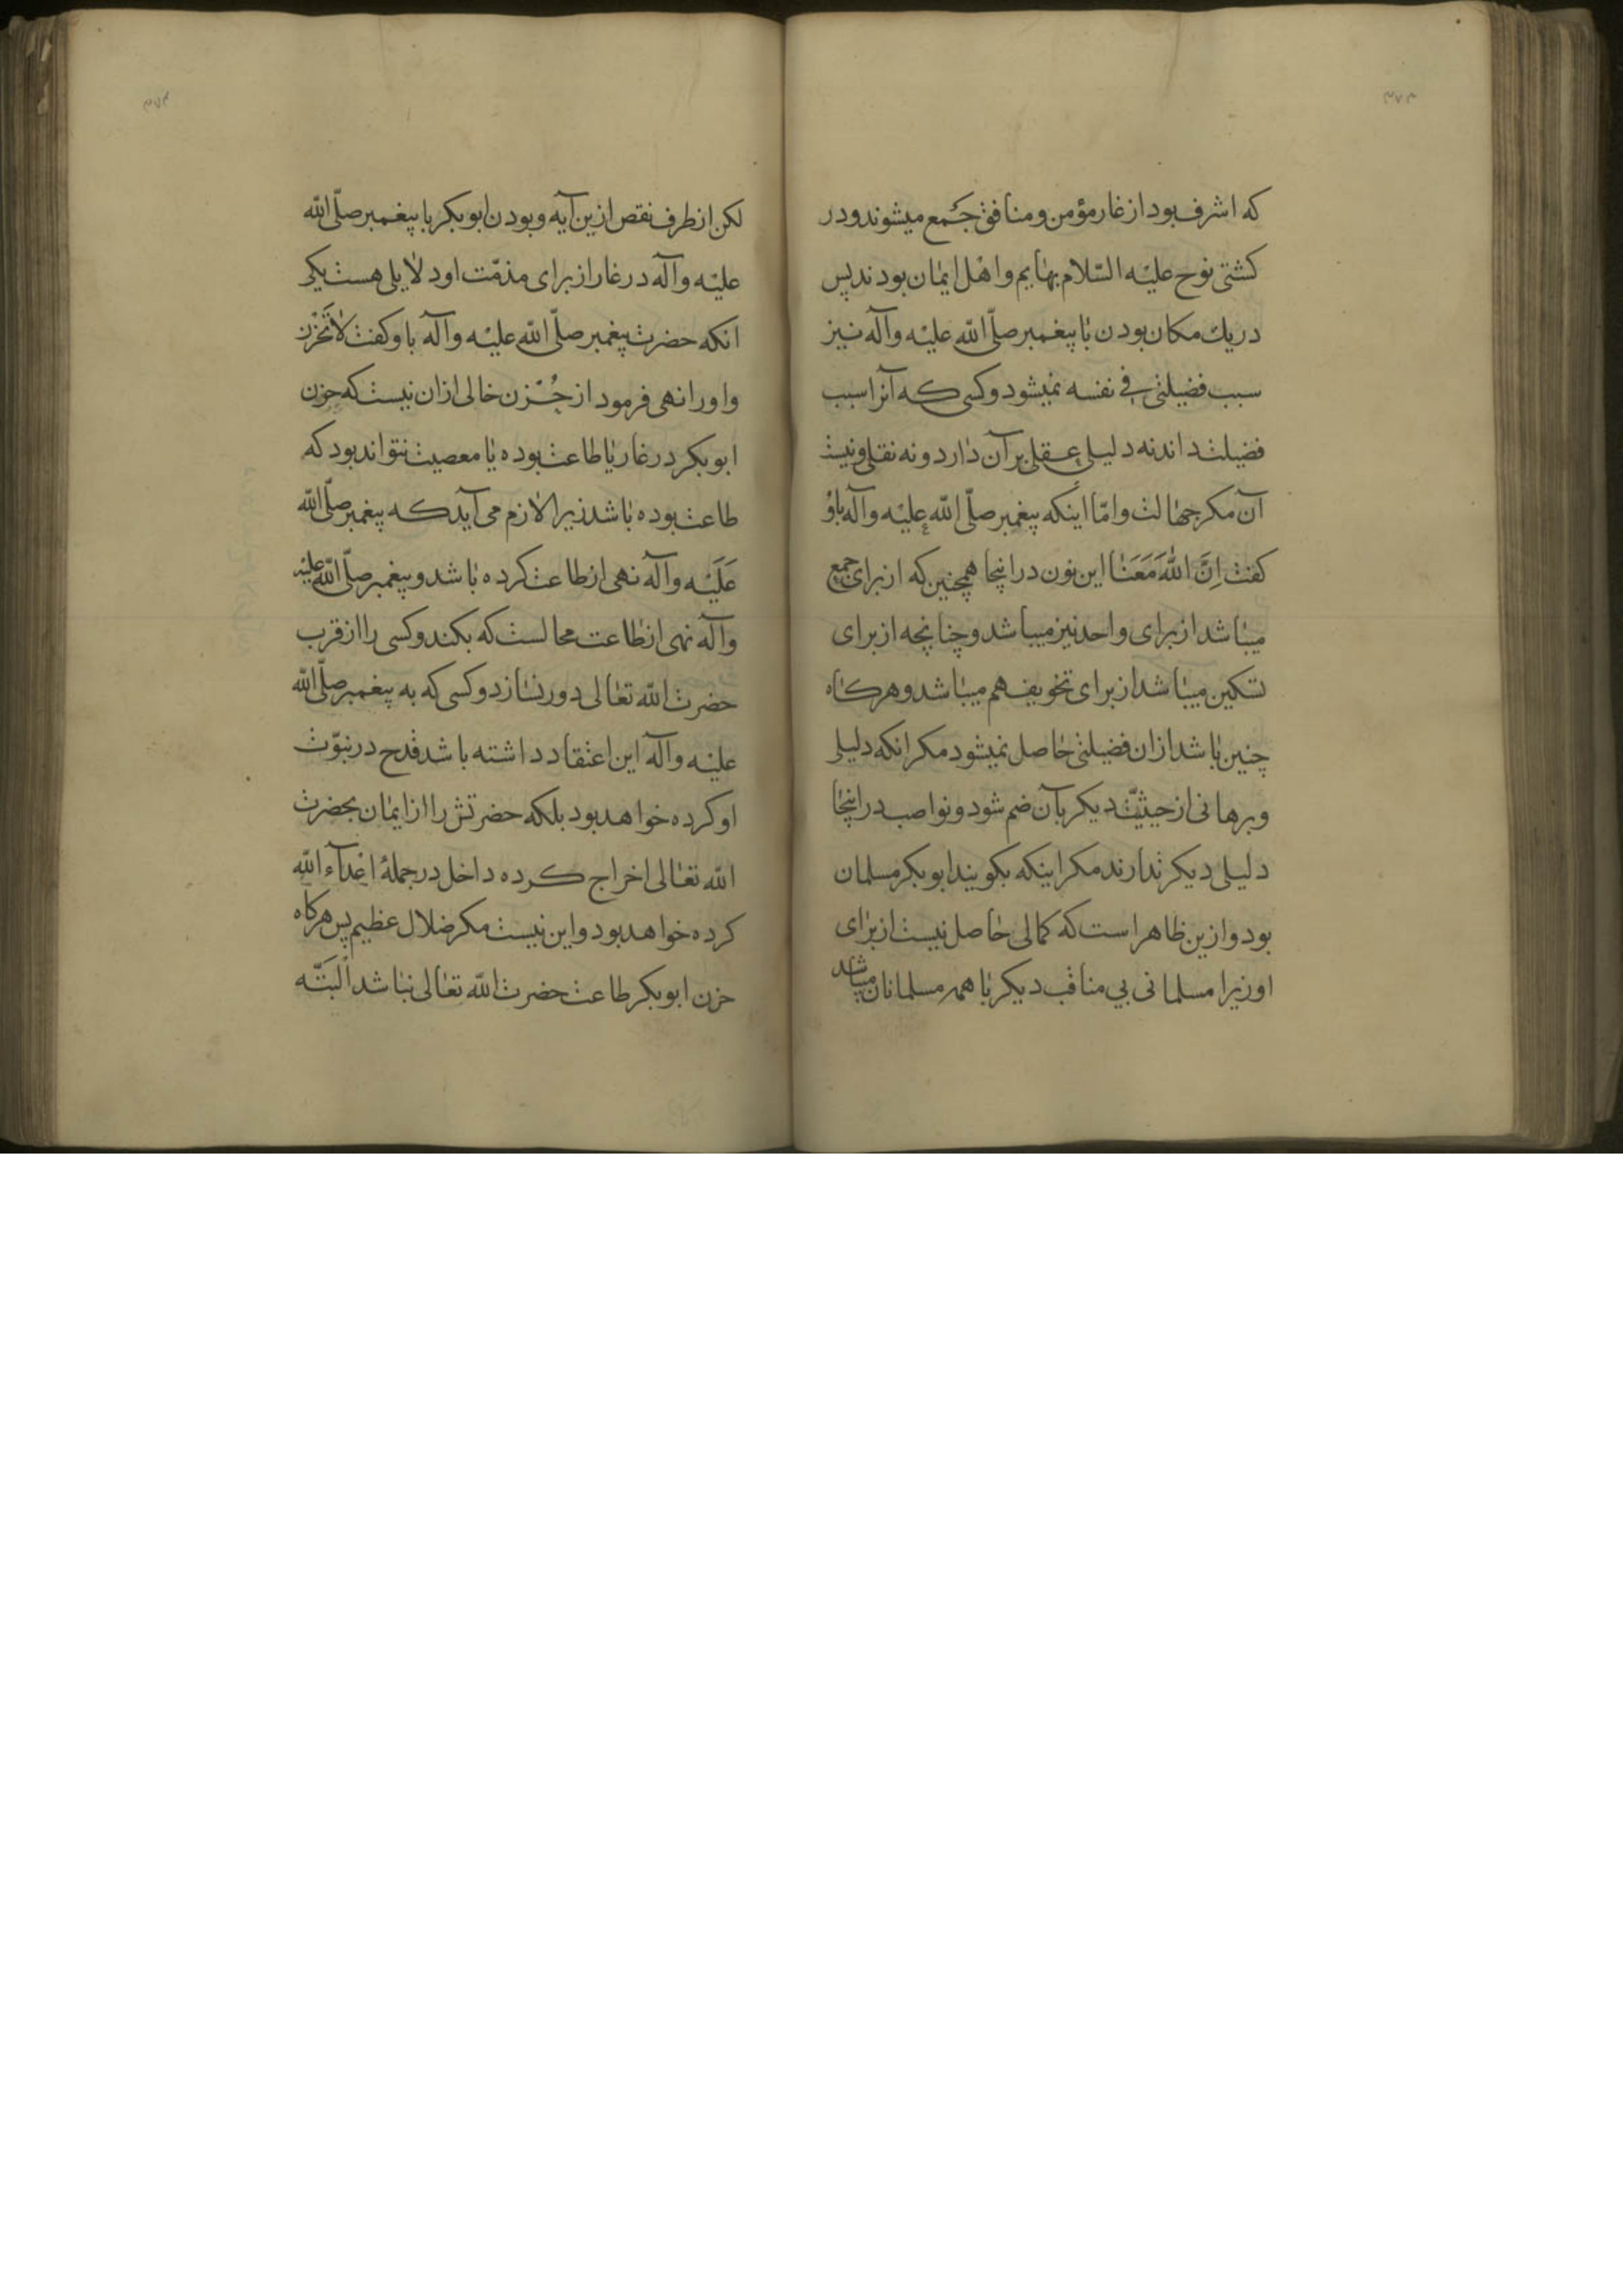 ۳۷۳
که اشرف بود از غار مؤمن و منافق جمع میشوند و در
کشتی نوح علیه السّلام بهایم و اهل ایمان بودند پس
در یك مکان بودن با پیغمبر صلّی الله علیه وآله نیز
سبب فضیلتی فی نفسه نمیشود و کسی که آنرا سبب
فضیلت داند نه دلیلی عقلی بر آن دارد و نه نقلی و نیست
آن مکر جهالت و امّا اینکه پیغمبر صلّی الله علیه وآله باو
کفت اِنَّ اللهَ مَعَنا این نون در اینجا همچنین که از برای جمع
میباشد از برای واحد نیز میباشد و چنانچه از برای
تسکین میباشد از برای تخویف هم میباشد و هرکاه
چنین باشد ازان فضیلتی حاصل نمیشود مکر انکه دلیلی
و برهانی از حیثیّت دیکر بآن ضم شود و نواصب در اینجا
دلیلی دیکر ندارند مکر اینکه بکویند ابوبکر مسلمان
بود و ازین ظاهر است که کمالی حاصل نیست از برای
او زیرا مسلمانی بی مناقب دیکر با همه مسلمانان میباشد
۳۷۴
لکن از طرف نقص ازین آیه و بودن ابوبکر با پیغمبر صلّی الله
علیه وآله در غار از برای مذمّت او دلایلی هست یکی
انکه حضرت پیغمبر صلّی الله علیه وآله باو کفت لاتَحْزَن
و اورا نهی فرمود از حُزن خالی ازان نیست که حزن
ابوبکر در غار یا طاعت بوده یا معصیت نتواند بود که
طاعت بوده باشد زیرا لازم می آید که پیغمبر صلّی الله
عَلَیْه وآله نهی از طاعت کرده باشد و پیغمبر صلّی الله علیه
وآله نهی از طاعت محالست که بکند و کسی را از قرب
حضرت الله تعالی دور نسازد و کسی که به پیغمبر صلّی الله
علیه وآله این اعتقاد داشته باشد قدح در نبوّت
او کرده خواهد بود بلکه حضرتش را از ایمان بحضرت
الله تعالی اخراج کرده داخل در جملهٔ اعدآء الله
کرده خواهد بود و این نیست مکر ضلال عظیم پس هرکاه
حزن ابوبکر طاعت حضرت الله تعالی نباشد البَتّه